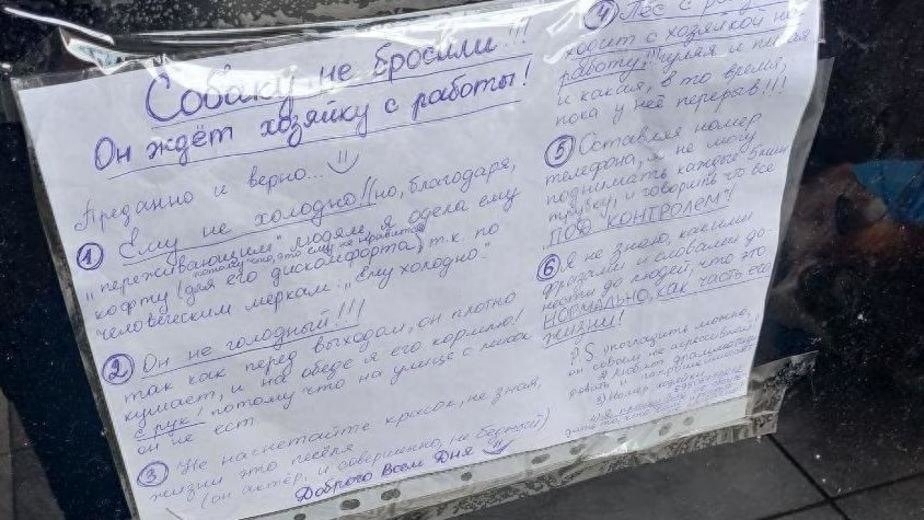 Собаку не бросили!!!
Он ждёт хозяйку с работы!
Преданно и верно...
① Ему не холодно!! (но, благодаря,
"переживающим" людям, я одела ему
потому что, это ему не нравится
кофту (для его дискомфорта) т.к. по
человеческим меркам: "Ему холодно."
② Он не голодный!!!
так как перед выходом, он плотно
кушает, и на обеде я его кормлю!
С рук! потому что на улице с миски
он не ест
③ Не нагнетайте красок, не зная,
жизни это пёселя
(он актёр, и совершенно, не бедный)
Доброго Всем Дня
④ Пёс с
ходит с хозяйкой на
работу!!! гуляя и писая
и какая, в то время,
пока у неё перерыв!!!
⑤ Оставляя номер
телефона, я не могу
поднимать каждые 5 мин
трубку, и говорить что всё
"ПОД КОНТРОЛЕМ"!
⑥ Я не знаю, какими
фразами и словами до-
нести до людей, что это
НОРМАЛЬНО, как часть его
жизни!
P.S. погладить можно,
он совсем не агрессивный!